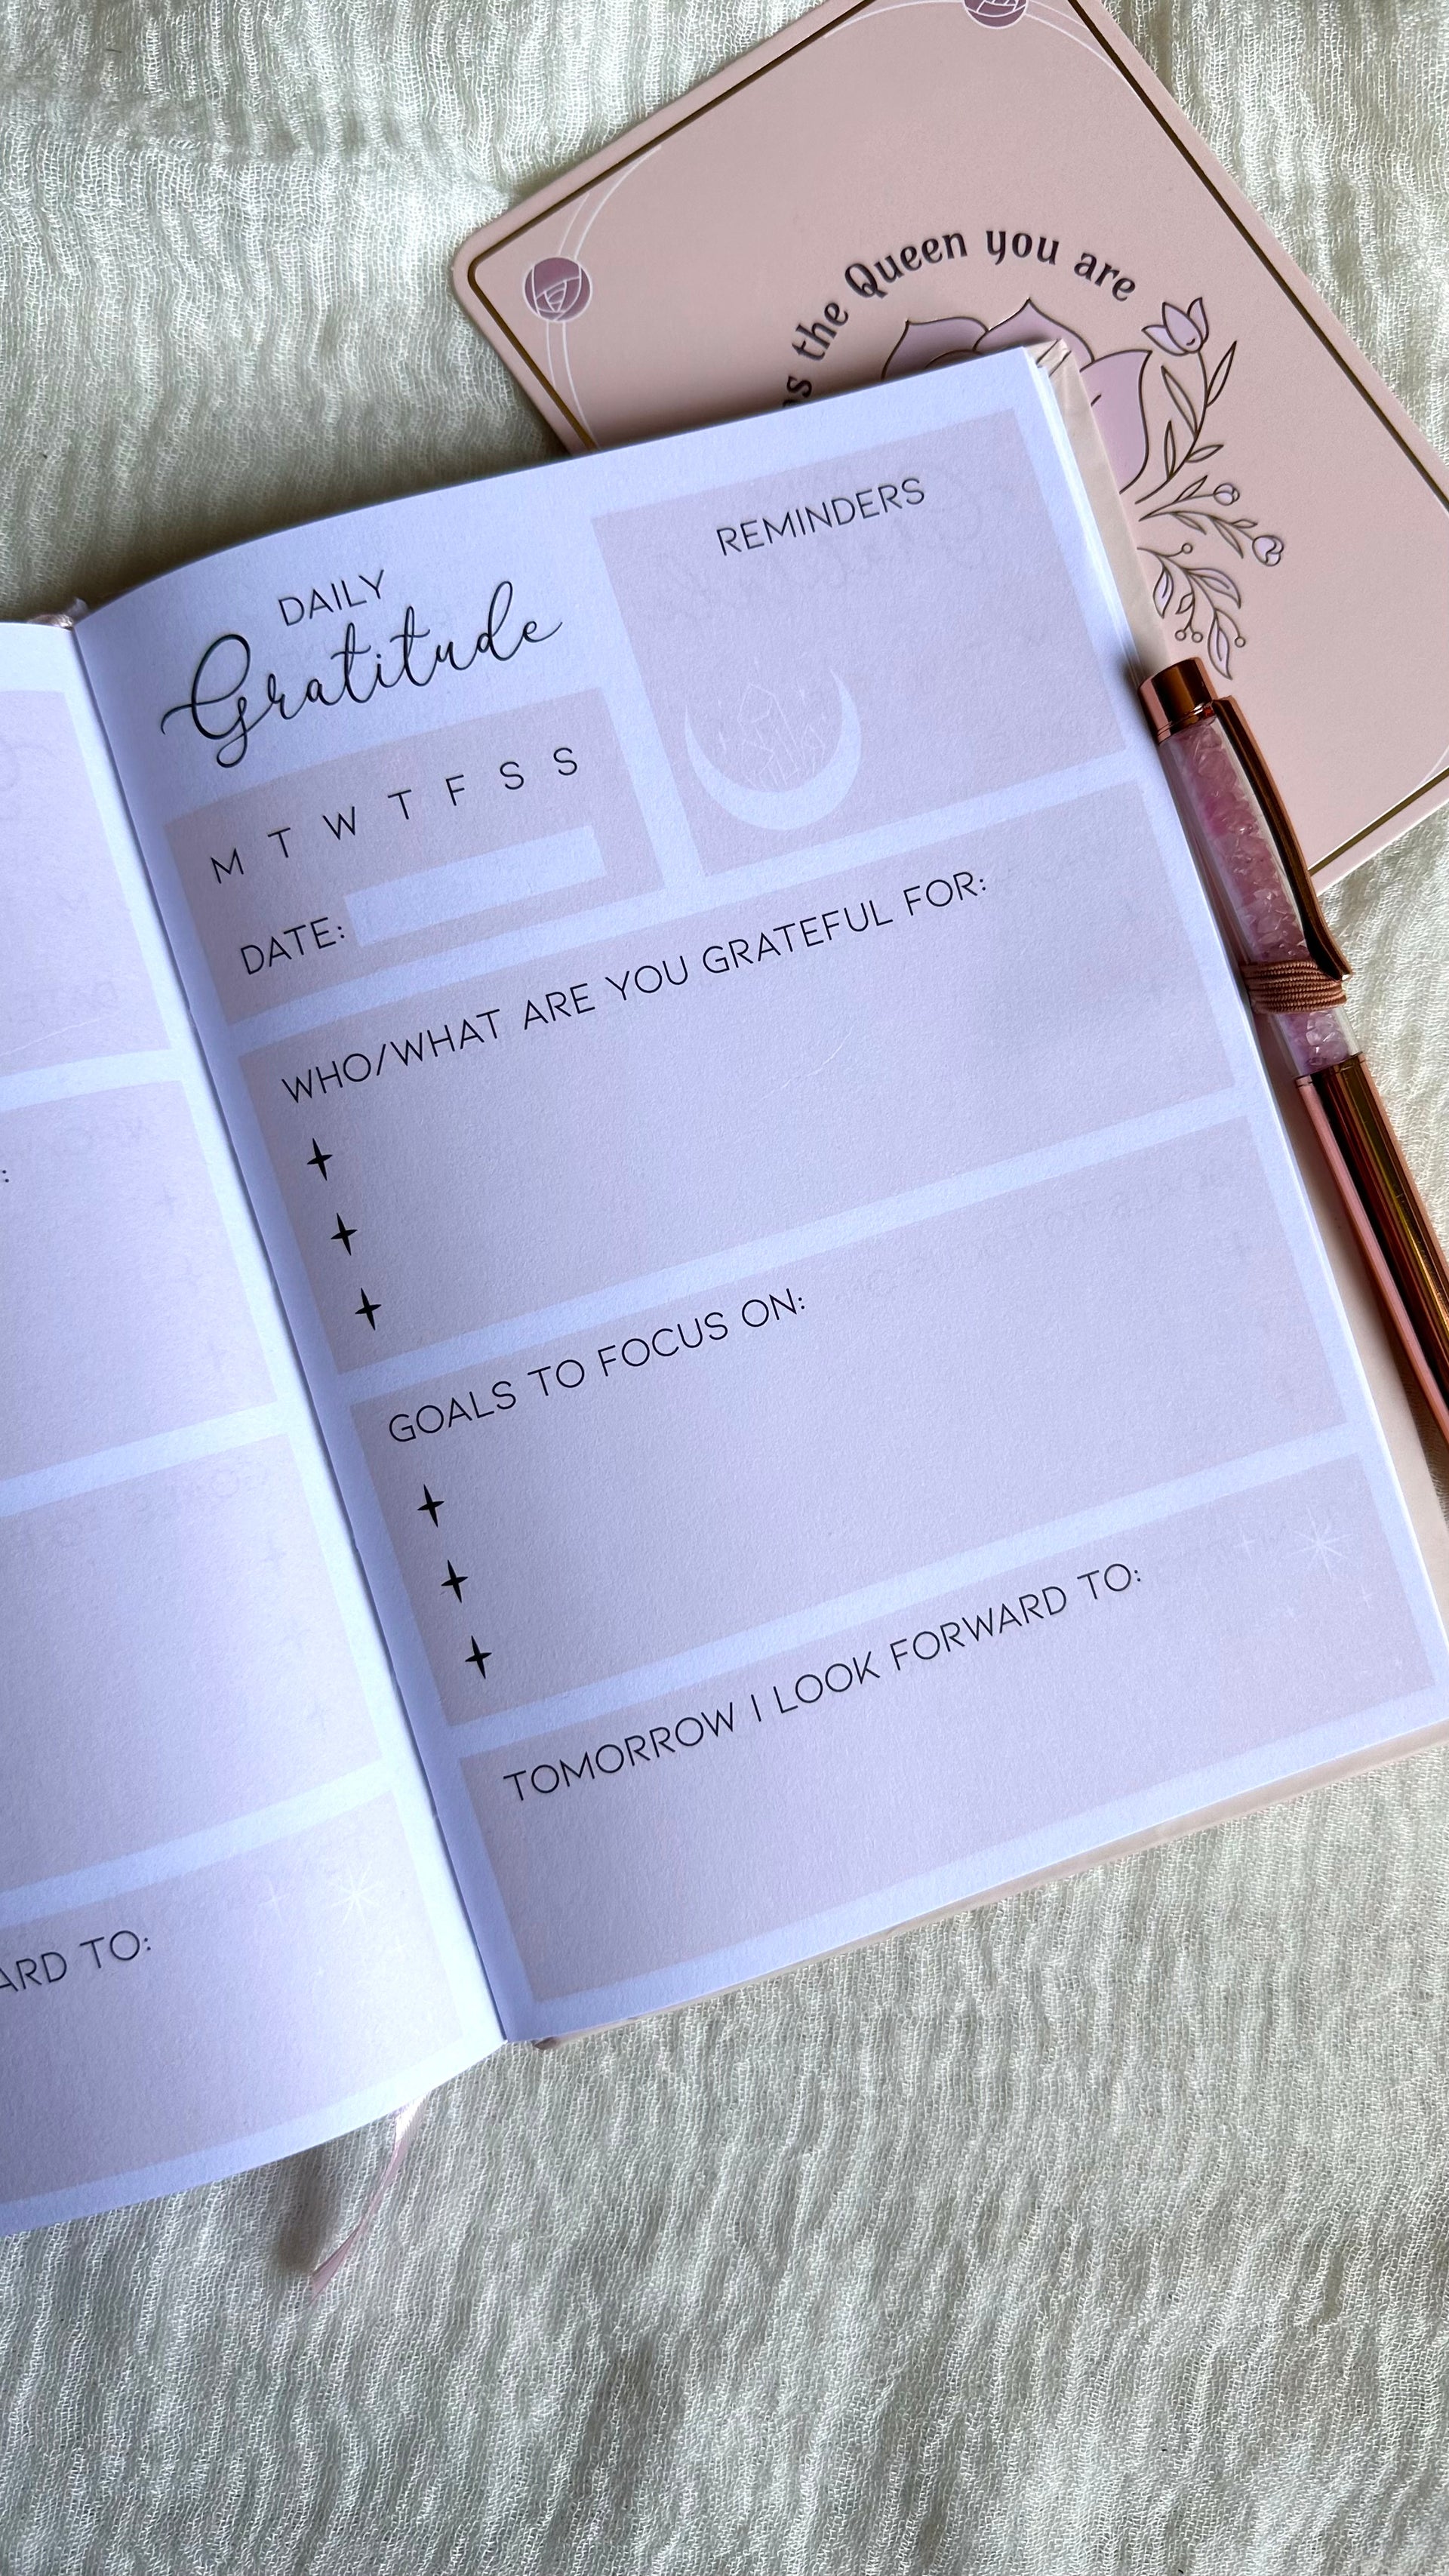 the Queen you are
REMINDERS
DAILY
Gratitude
M T W T F S S
DATE:
WHO/WHAT ARE YOU GRATEFUL FOR:
GOALS TO FOCUS ON:
TOMORROW I LOOK FORWARD TO:
TO: